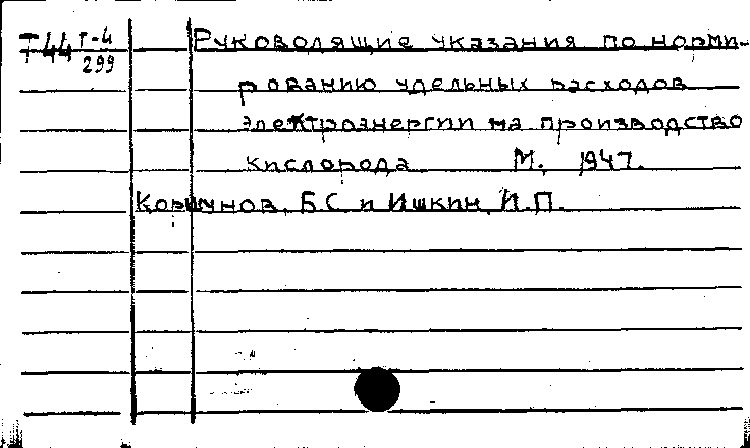 Т-44 Т-4/299 Руководящие указания по норми-
рованию удельных расходов
электроэнергии на производство
кислорода М., 1947.
Коршунов, Б.С и Ишкин, И.П.